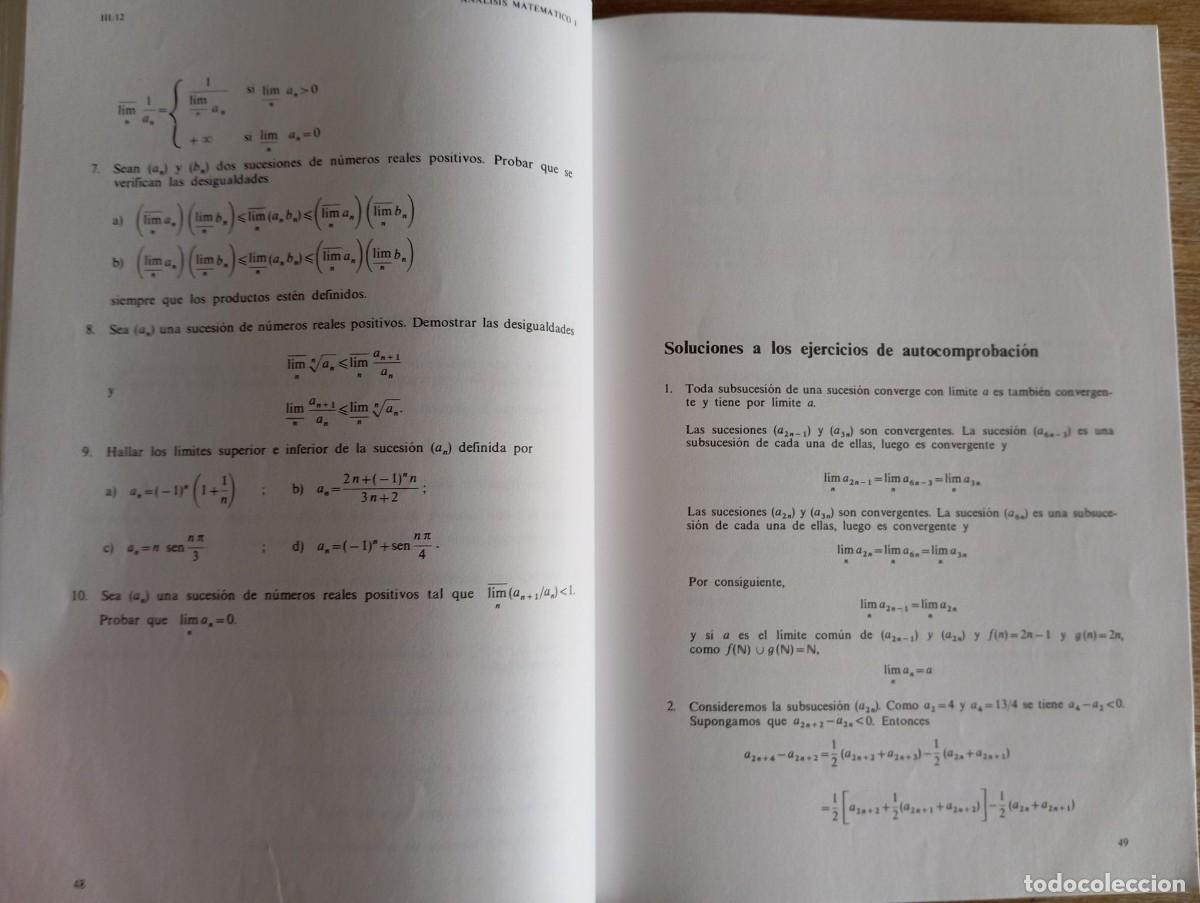 III.12
ANÁLISIS MATEMÁTICO I
$\overline{\lim}_n \frac{1}{a_n} = \begin{cases} \frac{1}{\underline{\lim}_n a_n} & \text{si } \underline{\lim}_n a_n > 0 \\ +\infty & \text{si } \underline{\lim}_n a_n = 0 \end{cases}$
7. Sean (aₙ) y (bₙ) dos sucesiones de números reales positivos. Probar que se
verifican las desigualdades
a) $\left(\overline{\lim}_n a_n\right)\left(\underline{\lim}_n b_n\right) \leqslant \overline{\lim}_n (a_n b_n) \leqslant \left(\overline{\lim}_n a_n\right)\left(\overline{\lim}_n b_n\right)$
b) $\left(\underline{\lim}_n a_n\right)\left(\underline{\lim}_n b_n\right) \leqslant \underline{\lim}_n (a_n b_n) \leqslant \left(\overline{\lim}_n a_n\right)\left(\underline{\lim}_n b_n\right)$
siempre que los productos estén definidos.
8. Sea (aₙ) una sucesión de números reales positivos. Demostrar las desigualdades
$\overline{\lim}_n \sqrt[n]{a_n} \leqslant \overline{\lim}_n \frac{a_{n+1}}{a_n}$
y
$\underline{\lim}_n \frac{a_{n+1}}{a_n} \leqslant \underline{\lim}_n \sqrt[n]{a_n}.$
9. Hallar los límites superior e inferior de la sucesión (aₙ) definida por
a) $a_n = (-1)^n \left(1 + \frac{1}{n}\right)$ ; b) $a_n = \frac{2n + (-1)^n n}{3n + 2}$ ;
c) $a_n = n \text{ sen} \frac{n\pi}{3}$ ; d) $a_n = (-1)^n + \text{sen} \frac{n\pi}{4}$ .
10. Sea (aₙ) una sucesión de números reales positivos tal que $\overline{\lim}_n (a_{n+1}/a_n) < 1$.
Probar que $\lim_n a_n = 0$.
48
Soluciones a los ejercicios de autocomprobación
1. Toda subsucesión de una sucesión converge con límite a es también convergen-
te y tiene por límite a.
Las sucesiones $(a_{2n-1})$ y $(a_{3n})$ son convergentes. La sucesión $(a_{6n-3})$ es una
subsucesión de cada una de ellas, luego es convergente y
$\lim_n a_{2n-1} = \lim_n a_{6n-3} = \lim_n a_{3n}$
Las sucesiones $(a_{2n})$ y $(a_{3n})$ son convergentes. La sucesión $(a_{6n})$ es una subsuce-
sión de cada una de ellas, luego es convergente y
$\lim_n a_{2n} = \lim_n a_{6n} = \lim_n a_{3n}$
Por consiguiente,
$\lim_n a_{2n-1} = \lim_n a_{2n}$
y si a es el límite común de $(a_{2n-1})$ y $(a_{2n})$ y $f(n) = 2n-1$ y $g(n) = 2n$,
como $f(\mathbb{N}) \cup g(\mathbb{N}) = \mathbb{N}$,
$\lim_n a_n = a$
2. Consideremos la subsucesión $(a_{2n})$. Como $a_2 = 4$ y $a_4 = 13/4$ se tiene $a_4 - a_2 < 0$.
Supongamos que $a_{2n+2} - a_{2n} < 0$. Entonces
$a_{2n+4} - a_{2n+2} = \frac{1}{2}(a_{2n+2} + a_{2n+3}) - \frac{1}{2}(a_{2n} + a_{2n+1})$
$= \frac{1}{2}\left[a_{2n+2} + \frac{1}{2}(a_{2n+1} + a_{2n+2})\right] - \frac{1}{2}(a_{2n} + a_{2n+1})$
49
todocoleccion